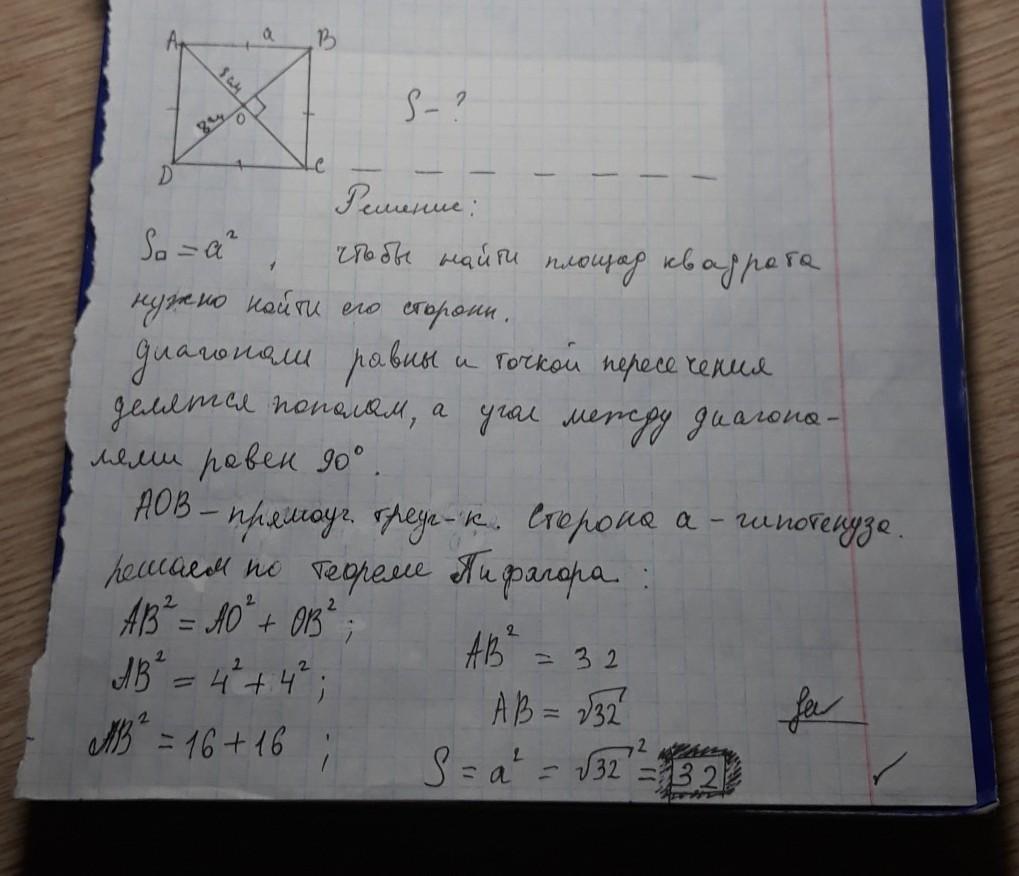 A a B
8см
8см O
D C
S - ?
Решение:
S□ = a², чтобы найти площад квадрата
нужно найти его стороны.
Диагонали равны и точкой пересечения
делятся пополам, а угол между диагона-
лями равен 90°.
AOB – прямоуг. треуг-к. Сторона a – гипотенуза.
решаем по теореме Пифагора:
AB² = AO² + OB²;
AB² = 4² + 4²;
AB² = 16 + 16 ;
AB² = 32
AB = √32
S = a² = √32² = 32